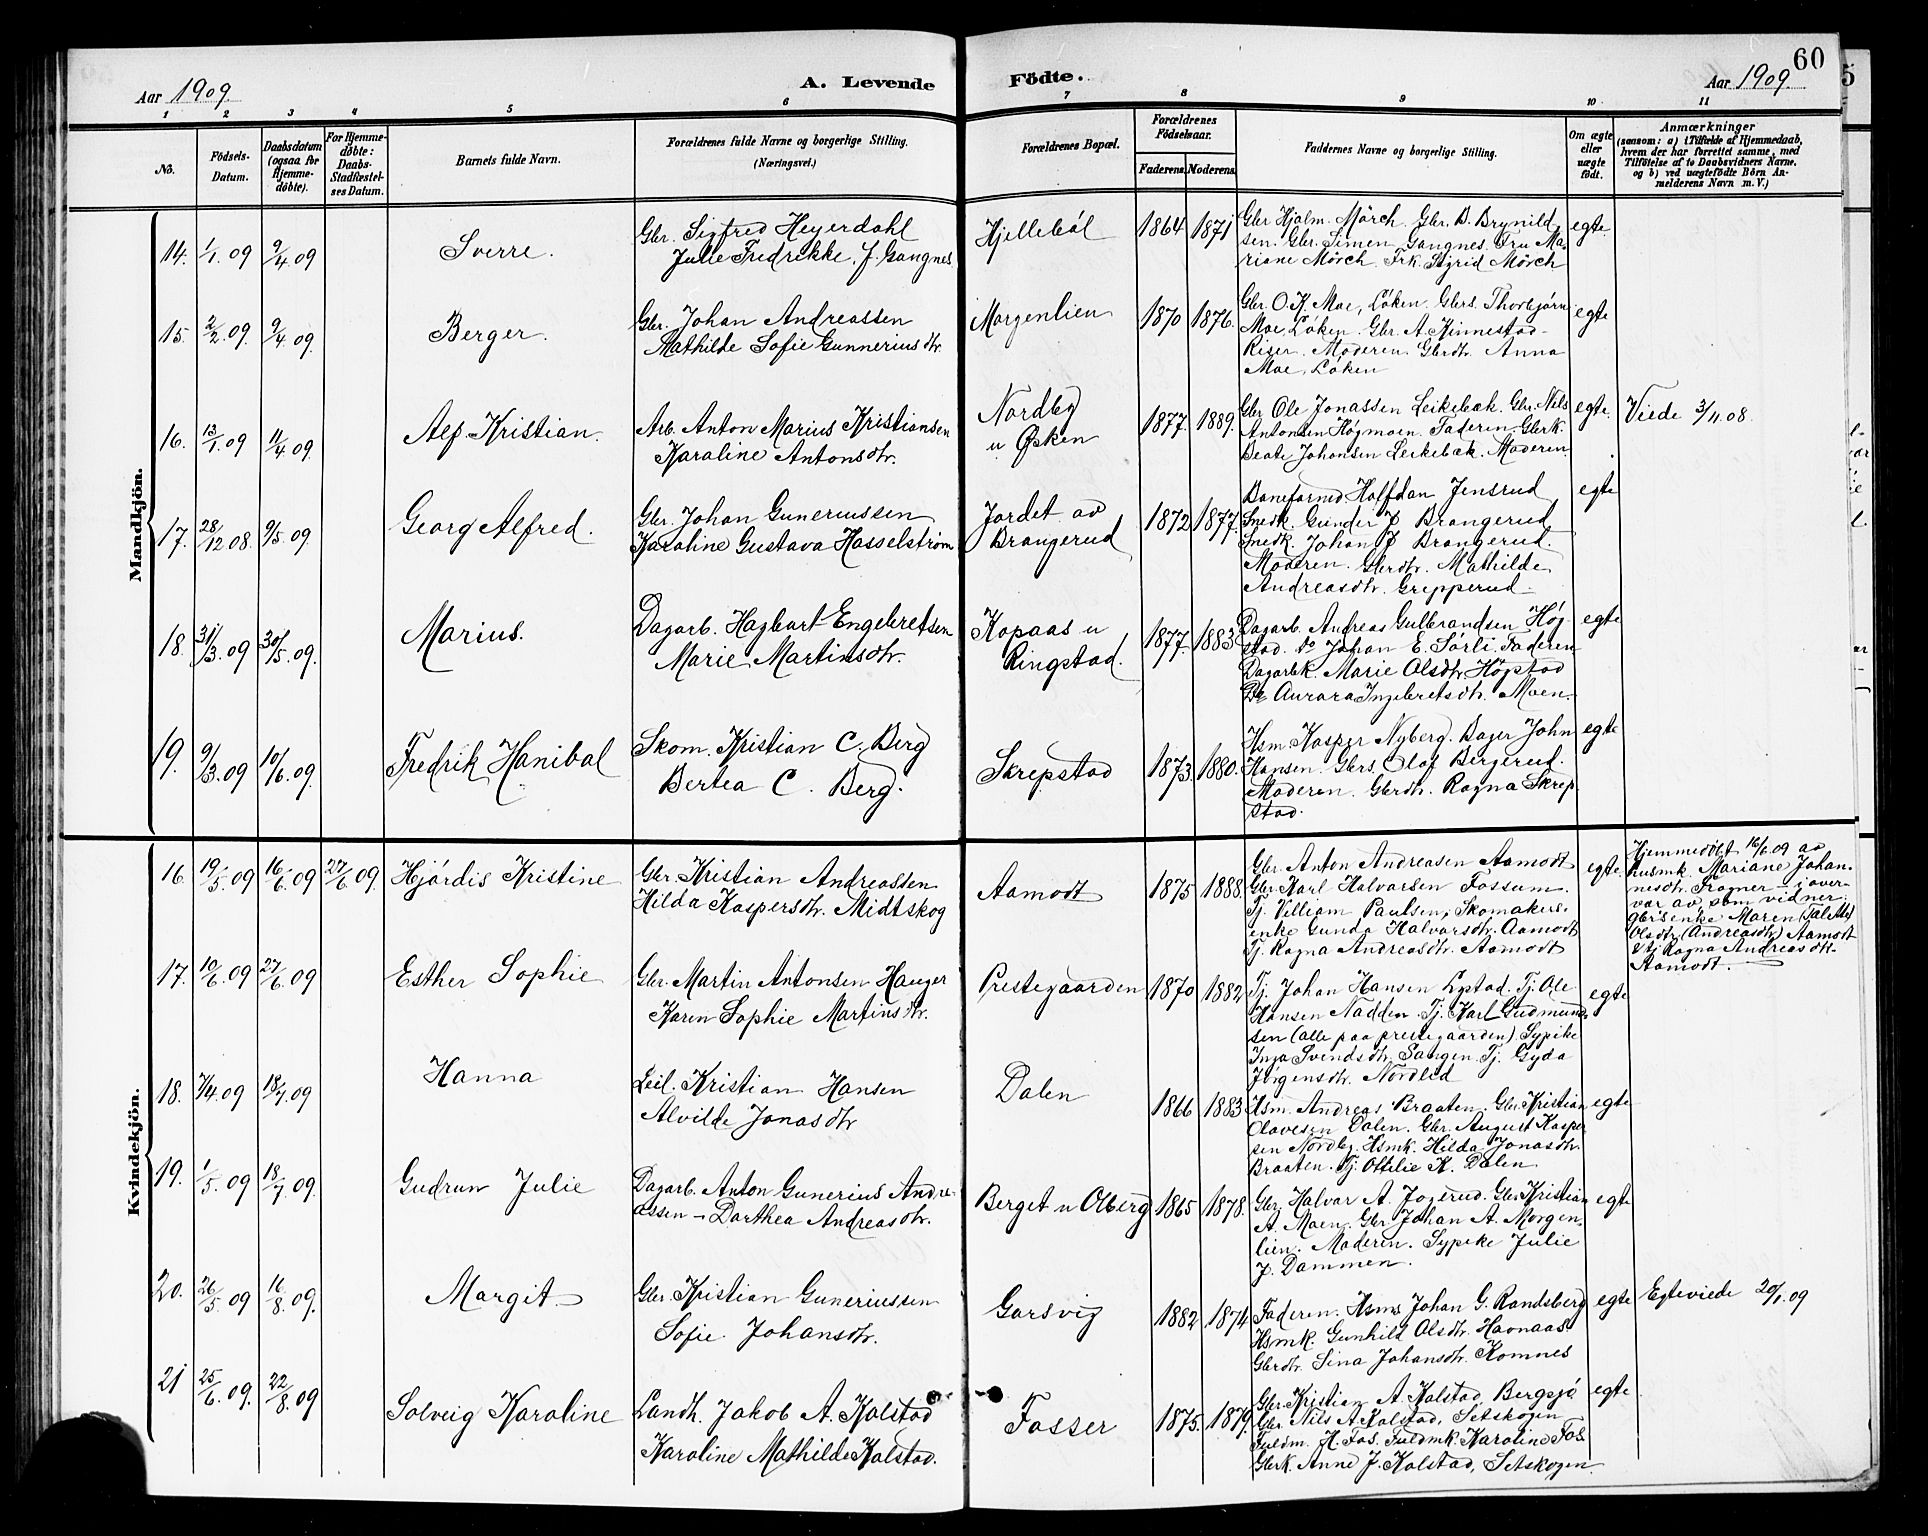 60
Aar 1909.
A. Levende Födte.
Aar 1909.
1 2 3 4 5 6 7 8 9 10 11
No.
Födsels-
Datum.
Daabsdatum
(ogsaa for
Hjemme-
döbte).
For Hjemme-
döbte:
Daabs-
Stadfæstel-
ses Datum.
Barnets fulde Navn.
Forældrenes fulde Navne og borgerlige Stilling.
(Næringsvei.)
Forældrenes Bopæl.
Forældrenes
Födselsaar.
Faderens. Moderens.
Faddernes Navne og borgerlige Stilling.
Om ægte
eller
uægte
födt.
Anmærkninger
(saasom: a) i Tilfælde af Hjemmedaab,
hvem der har forrettet samme, med
Tilföielse af to Daabsvidners Navne,
og b) ved uægtefödte Börn An-
melderens Navn m. V.)
Mandkjön.
14. 1/1.09 9/4.09 Sverre.
Gbr. Sigfred Heyerdahl
Julie Fredrikke, f. Gangnes
Hjellebøl 1864 1871
Gbr Hjalm. Mörch. Gbr. B. Brynild
sen. Gbr. Simen Gangnes. Fru Ma-
riane Mörch. Frk. Sigrid Mörch
egte.
15. 2/2.09. 9/4.09. Berger.
Gbr. Johan Andreassen
Mathilde Sofie Gunnerius dtr.
Morgenlien 1870 1876.
Gbr. O.K. Moe, Løken. Gbrs. Thorbjørn
Moe, Løken. Gbr. A. Kinnestad-
Riser. Moderen. Gbrdtr. Anna
Moe, Løken
egte
16. 13/1.09 11/4.09 Alf Kristian.
Arb. Anton Marius Kristiansen
Karaline Antonsdtr.
Nordby
u Øsken
1877. 1889.
Gbr Ole Jonassen Leikebæk. Gbr. Nils
Antonsen Högmoen. Faderen. Gbrk.
Beate Johansen Leikebæk. Moderen.
egte.
Viede 3/11.08.
17. 28/12 08. 9/5.09 Georg Alfred.
Gbr. Johan Guneriussen
Karaline Gustava Hasselstrøm
Jordet av
Brangerud
1872 1877.
Baneformd. Halfdan Jensrud
Snedk. Gunder J. Brangerud
Snedk. Johan J. Brangerud.
Moderen. Gbrdtr. Mathilde
Andreasdtr. Grepperud
egte
18. 31/3.09 30/5.09. Marius.
Dagarb. Hagbart Engebretsen
Marie Martinsdtr.
Kopaas u
Ringstad.
1877. 1883
Dagarb. Andreas Gulbrandsen Høg-
stad. Do Johan E. Sørli. Faderen
Dagarbk. Marie Olsdtr. Høgstad
Do Aurora Ingebretsdtr. Moen.
egte
19. 9/3.09 10/6.09. Fredrik Hanibal
Skom. Kristian C. Berg
Bertea C. Berg.
Skrepstad 1873 1880.
Hsm. Kasper Nyberg. Bager John
Hansen. Gbrs. Olaf Bergerud.
Moderen. Gbrdtr. Ragna Skrep
stad.
egte
Kvindekjön.
16. 19/5.09 16/6.09 27/6 09. Hjördis Kristine
Gbr. Kristian Andreassen
Hilda Kaspersdtr. Midtskog
Aamodt 1875 1888.
Gbr. Anton Andreasen Aamodt
Gbr. Karl Halvarsen Fossum.
Tj. Villiam Paulsen, Skomakers-
enke Gunda Halvarsdtr. Aamodt
Tj. Ragna Andreasdtr. Aamodt
egte.
Hjemmedöbt 16/6.09 av
husmk. Mariane Johan-
nesdtr. Fragner - i over-
vær av, som vidner:
gbrsenke Maren
Olsdtr. (Andreasdtr.) Aamodt
& tj. Ragna Andreasdtr.
Aamodt.
17. 10/6.09 27/6.09 Esther Sophie
Gbr. Martin Antonsen Hauger
Karen Sophie Martinsdtr.
Prestegaarden 1870 1882
Tj. Johan Hansen Lystad. Tj. Ole
Hansen Nadden. Tj. Karl Gudmund-
sen (alle paa prestegaarden). Sypike
Inga Svendsdtr. Sangen. Tj. Gyda
Jørgensdtr. Nordlid
egte
18. 7/4.09 18/7.09 Hanna
Leil. Kristian Hansen
Alvilde Jonasdtr
Dalen 1866 1883
Hsm. Andreas Braaten. Gbr. Kristian
Olavesen Dalen. Gbr. August Kasper
sen Nordby. Hsmk. Hilda Jonasdtr.
Braaten. Tj. Ottilie K. Dalen
egte
19. 1/5.09 18/7.09. Gudrun Julie
Dagarb. Anton Gunerius Andre-
assen - Darthea Andreasdtr.
Berget u Olberg 1865 1878.
Gbr. Halvar A. Jogerud. Gbr. Kristian
A. Moen. Gbr. Johan A. Morgen-
lien. Moderen. Sypike Julie
J. Dammen.
egte
20. 26/5 09 16/8.09. Margit
Gbr. Kristian Guneriussen
Sofie Johansdtr.
Garsvig 1882 1874
Faderen. Hsms Johan G. Randsberg
Hsmk. Gunhild Olsdtr. Haonaas
Gbrdtr. Sina Johansdtr. Komnes
egte
Egteviede 20/1.09
21 25/6.09. 22/8.09 Solveig Karoline
Landh. Jakob A. Kolstad
Karoline Mathilde Kolstad.
Fosser 1875. 1879.
Gbr. Kristian A. Kolstad, Bergsjö
Gbr. Nils A. Kolstad, Setskogen
Fuldm. H. Fos. Fuldmk. Karoline Fos
Gbrk. Anne J. Kolstad, Setskogen.
egte